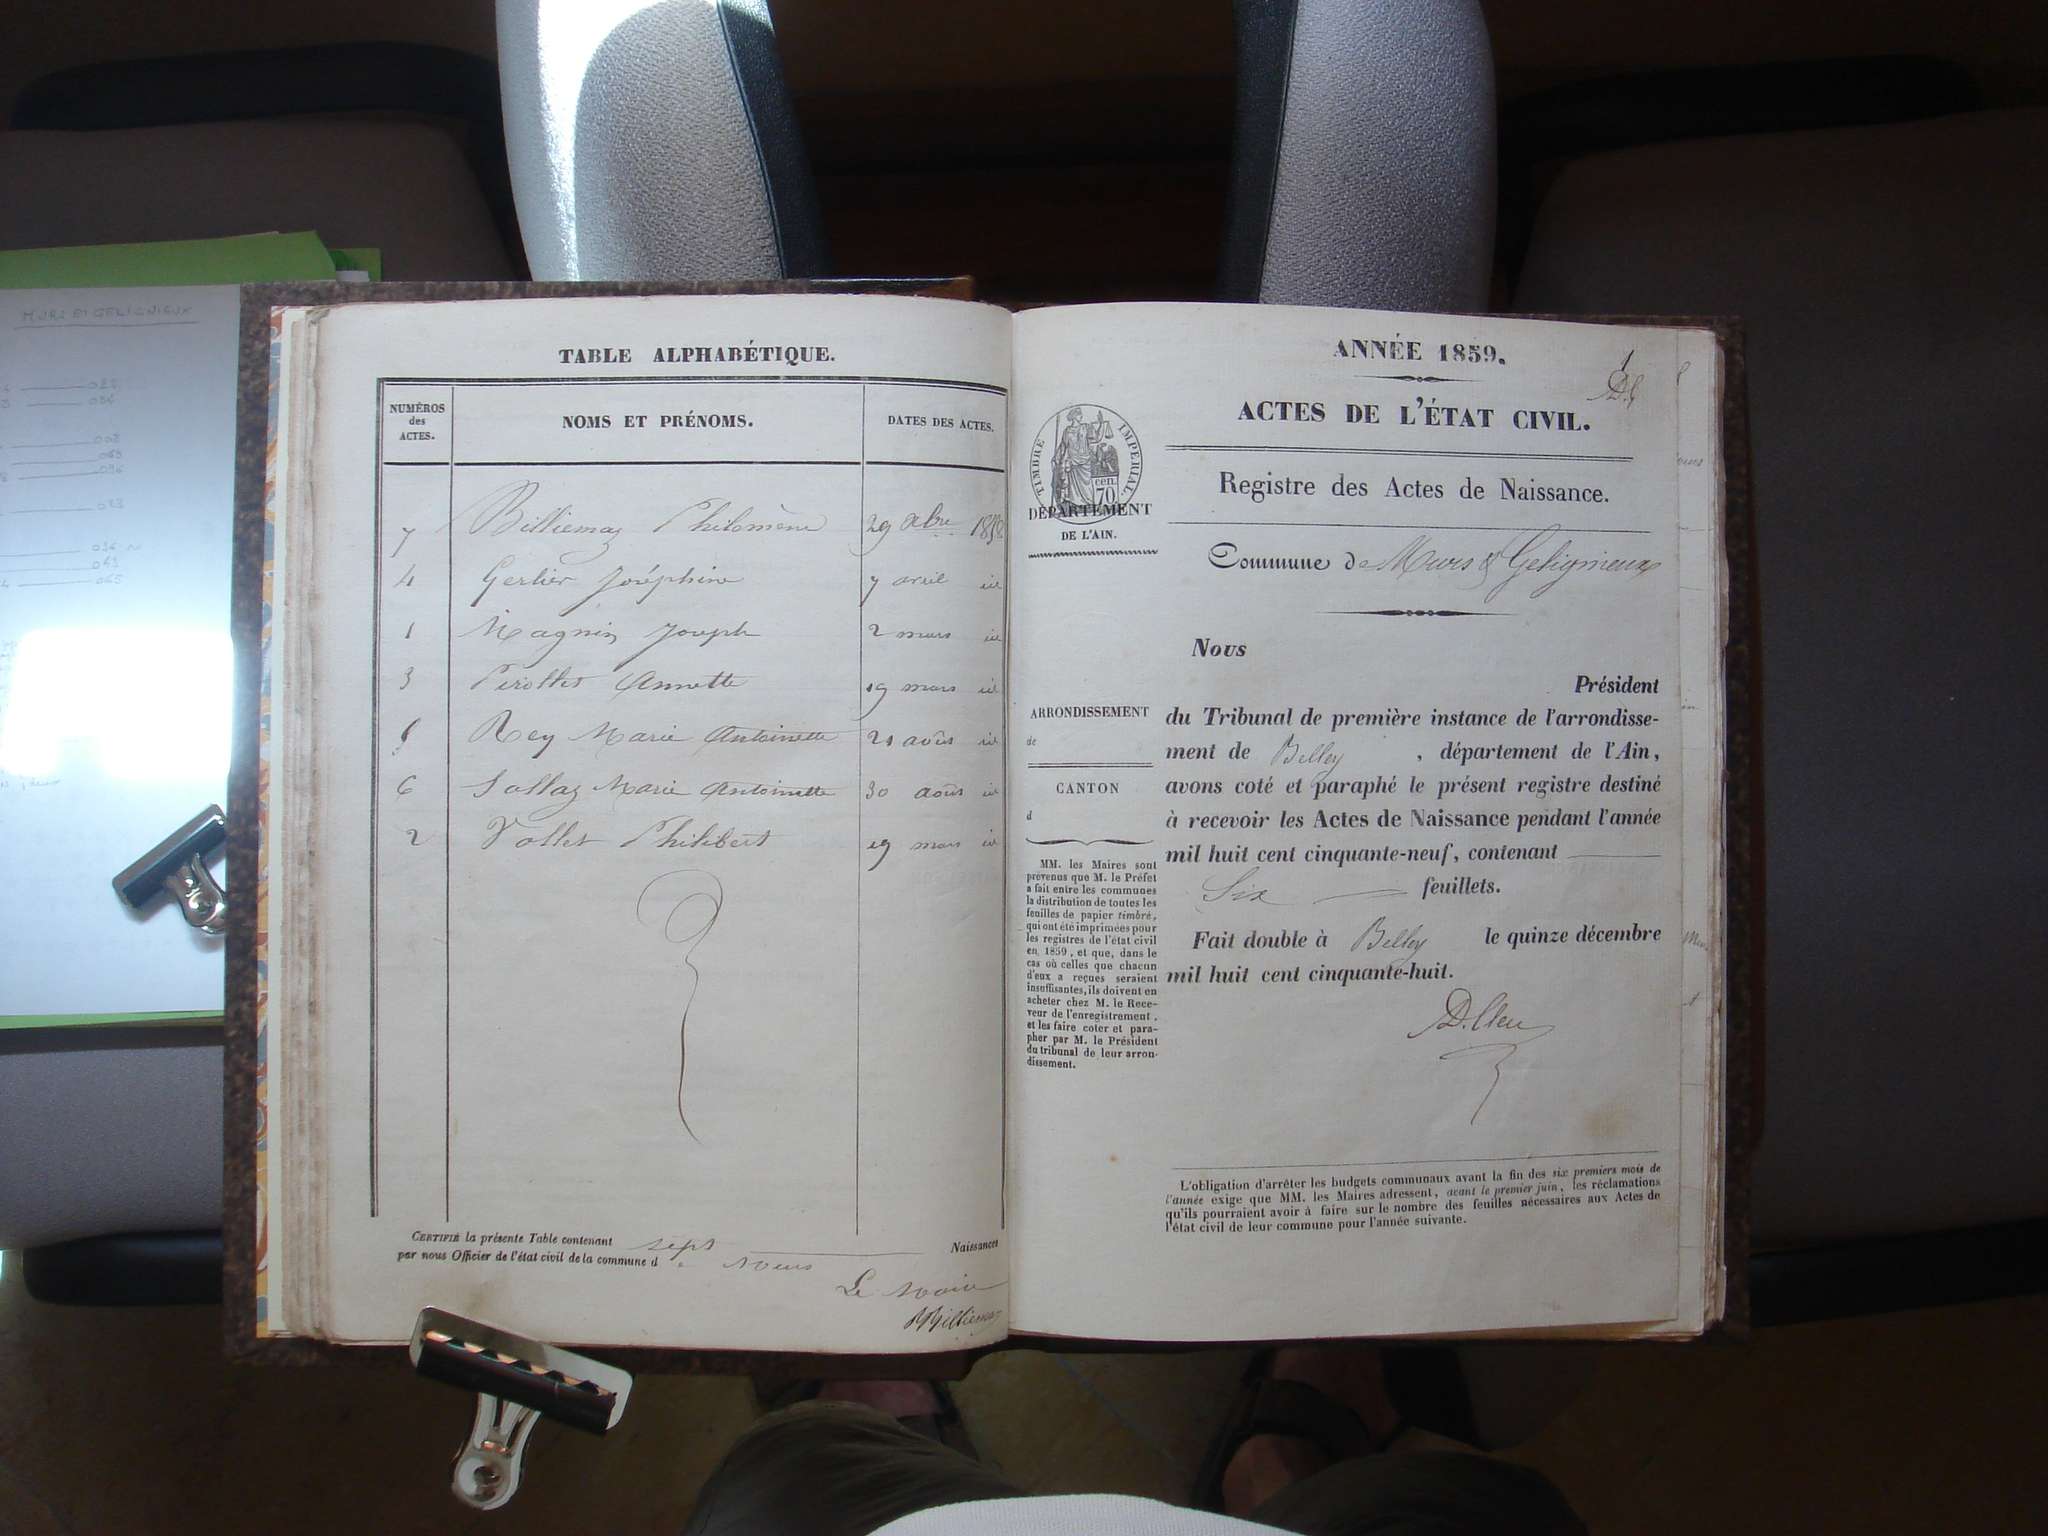 MURS ET GELIGNIEUX
TABLE ALPHABÉTIQUE.
NUMÉROS des ACTES. NOMS ET PRÉNOMS. DATES DES ACTES.
7 Billiemaz Philomène 29 8bre 1858
4 Gerlier Joséphine 7 avril id
1 Magnin Joseph 2 mars id
3 Perollet Annette 19 mars id
5 Rey Marie Antoinette 21 août id
6 Sallaz Marie Antoinette 30 août id
2 Vollet Philibert 19 mars id
CERTIFIÉ la présente Table contenant sept Naissances
par nous Officier de l'état civil de la commune d Murs
Le Maire
Billiemaz
ANNÉE 1859.
1
ACTES DE L'ÉTAT CIVIL.
TIMBRE IMPÉRIAL.
70 cen.
DÉPARTEMENT
DE L'AIN.
Registre des Actes de Naissance.
Commune de Murs & Gelignieux
Nous
Président
du Tribunal de première instance de l'arrondisse-
ment de Belley, département de l'Ain,
avons coté et paraphé le présent registre destiné
à recevoir les Actes de Naissance pendant l'année
mil huit cent cinquante-neuf, contenant
Six feuillets.
Fait double à Belley le quinze décembre
mil huit cent cinquante-huit.
ARRONDISSEMENT
de
CANTON
d
MM. les Maires sont
prévenus que M. le Préfet
a fait entre les communes
la distribution de toutes les
feuilles de papier timbré,
qui ont été imprimées pour
les registres de l'état civil
en 1859, et que, dans le
cas où celles que chacun
d'eux a reçues seraient
insuffisantes, ils doivent en
acheter chez M. le Rece-
veur de l'enregistrement,
et les faire coter et para-
pher par M. le Président
du tribunal de leur arron-
dissement.
L'obligation d'arrêter les budgets communaux avant la fin des six premiers mois de
l'année exige que MM. les Maires adressent, avant le premier juin, les réclamations
qu'ils pourraient avoir à faire sur le nombre des feuilles nécessaires aux Actes de
l'état civil de leur commune pour l'année suivante.